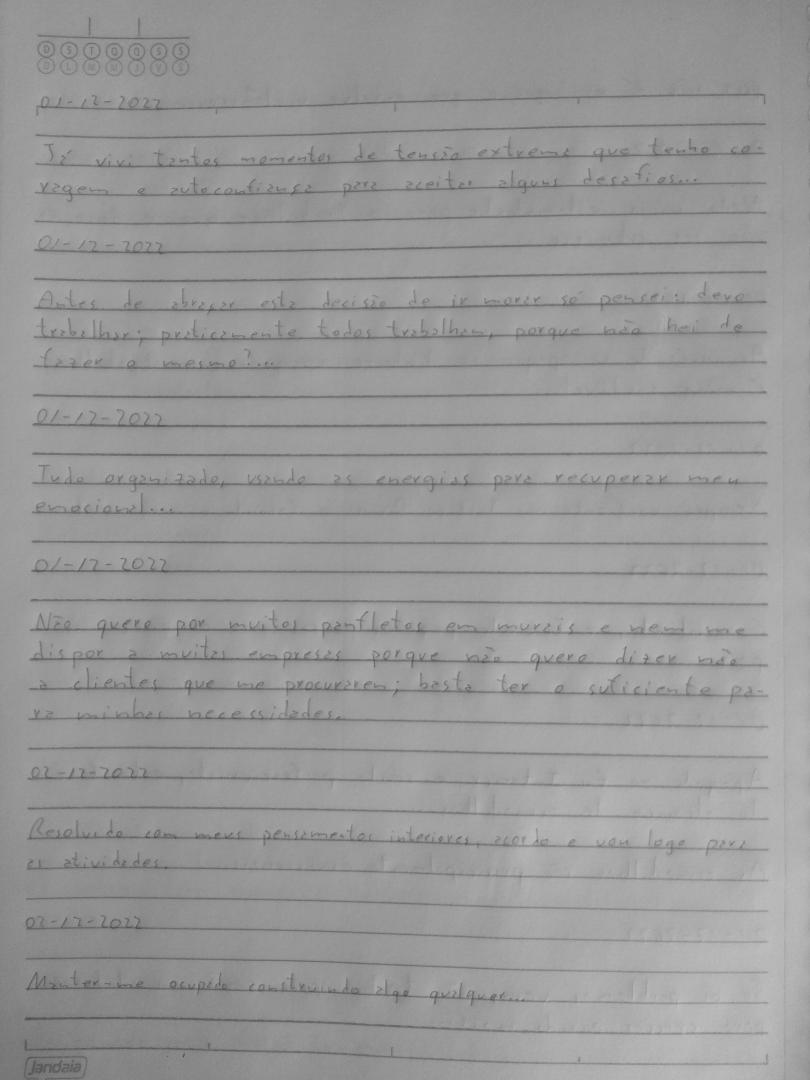 D S T Q Q S S
D L M M J V S
01-12-2022
Já vivi tantos momentos de tensão extrema que tenho co-
ragem e autoconfiança para aceitar alguns desafios...
01-12-2022
Antes de abraçar esta decisão de ir morar só pensei: devo
trabalhar; praticamente todos trabalham, porque não hei de
fazer o mesmo?...
01-12-2022
Tudo organizado, usando as energias para recuperar meu
emocional...
01-12-2022
Não quero por muitos panfletos em murais e nem me
dispor a muitas empresas porque não quero dizer não
a clientes que me procurarem; basta ter o suficiente pa-
ra minhas necessidades.
02-12-2022
Resolvido com meus pensamentos interiores, acordo e vou logo para
as atividades.
02-12-2022
Manter-me ocupado construindo algo qualquer...
Jandaia